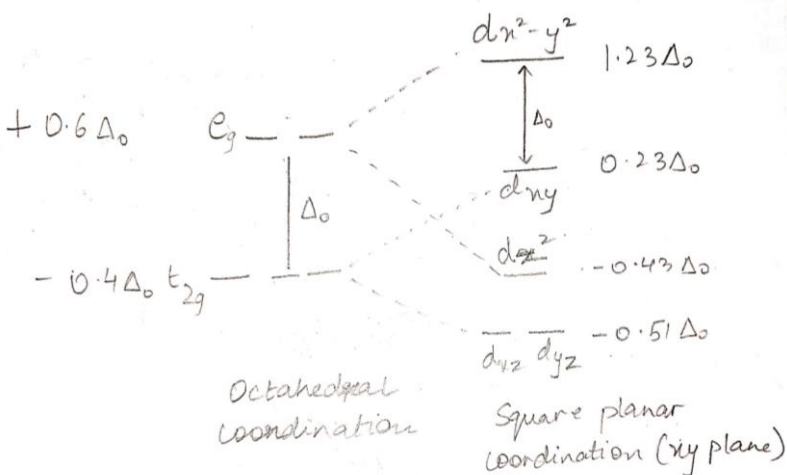 dx²-y² 1.23Δ₀
+ 0.6Δ₀ eg
Δ₀
0.23Δ₀
dxy
Δ₀
dz²
-0.43Δ₀
- 0.4Δ₀ t₂g
-0.51Δ₀
dxz dyz
Octahedral
coordination
Square planar
coordination (xy plane)